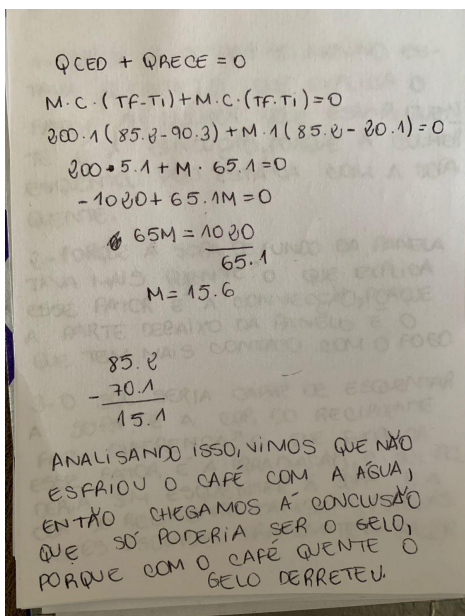 QCED + QRECE = 0
M.C.(TF-TI)+M.C.(TF.TI)=0
200.1(85.2-90.3)+M.1(85.2-20.1)=0
200.5.1+M.65.1=0
-1020+65.1M=0
65M=1020
65.1
M=15.6
85.2
- 70.1
15.1
ANALISANDO ISSO, VIMOS QUE NÃO
ESFRIOU O CAFÉ COM A ÁGUA,
ENTÃO CHEGAMOS Á CONCLUSÃO
QUE SÓ PODERIA SER O GELO,
PORQUE COM O CAFÉ QUENTE O
GELO DERRETEU.